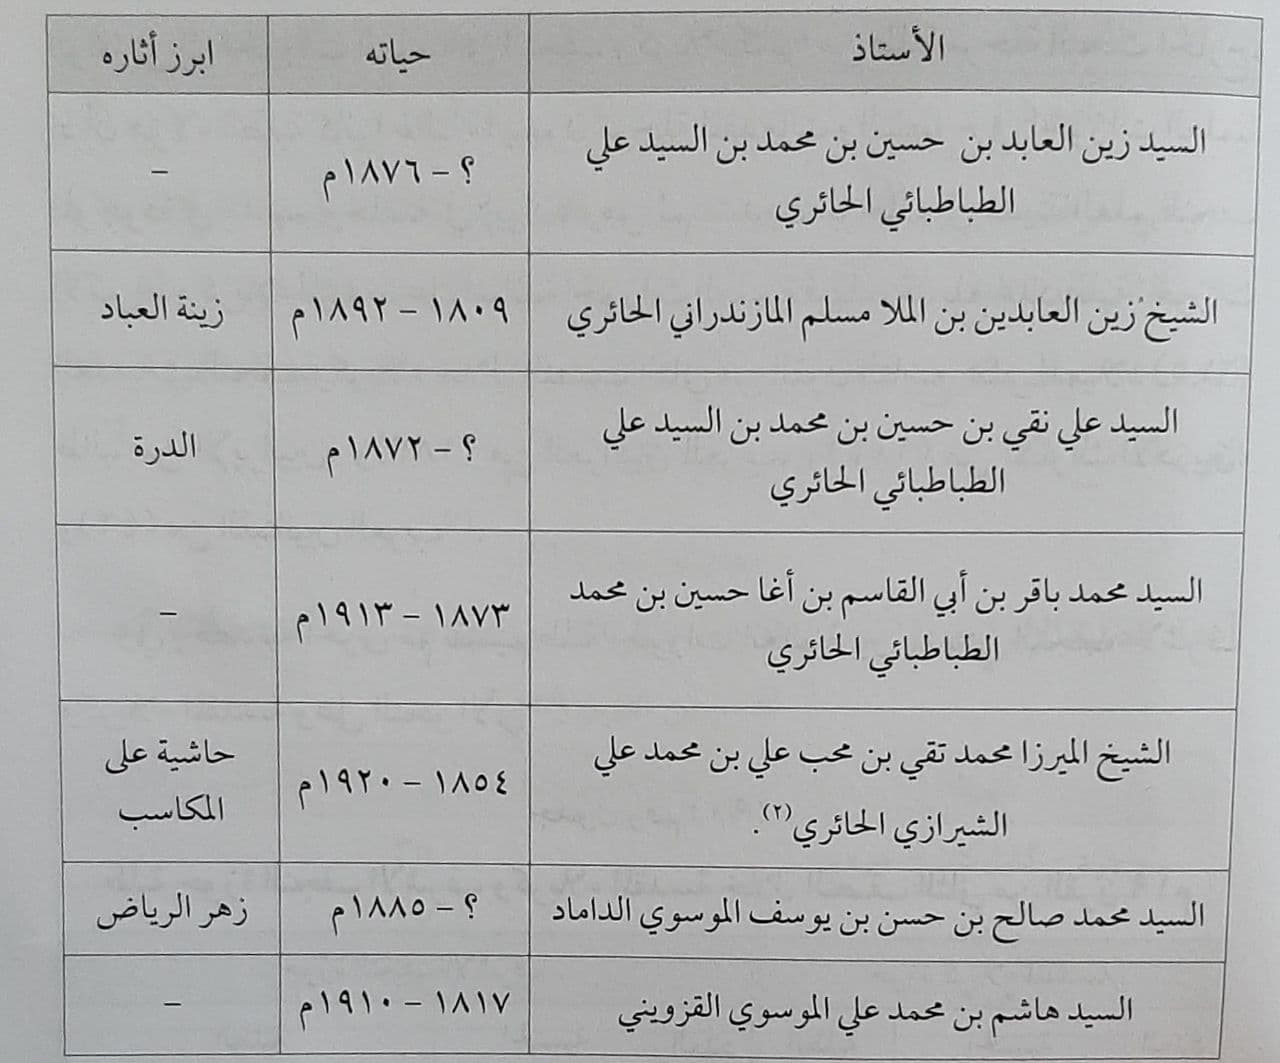 الأستاذ حياته ابرز أثاره
السيد زين العابد بن حسين بن محمد بن السيد علي
الطباطبائي الحائري
؟ - ١٨٧٦م
–
الشيخ زين العابدين بن الملا مسلم المازندراني الحائري ١٨٠٩ - ١٨٩٢م زينة العباد
السيد علي نقي بن حسين بن محمد بن السيد علي
الطباطبائي الحائري
؟ - ١٨٧٢م
الدرة
السيد محمد باقر بن أبي القاسم بن أغا حسين بن محمد
الطباطبائي الحائري
١٨٧٣ - ١٩١٣م
–
الشيخ الميرزا محمد تقي بن محب علي بن محمد علي
الشيرازي الحائري(٢).
١٨٥٤ - ١٩٢٠م
حاشية على
المكاسب
السيد محمد صالح بن حسن بن يوسف الموسوي الداماد ؟ - ١٨٨٥م زهر الرياض
السيد هاشم بن محمد علي الموسوي القزويني ١٨١٧ - ١٩١٠م –